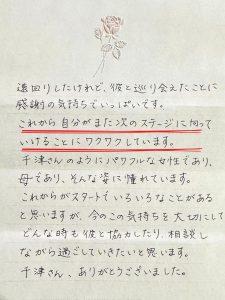 遠回りしたけれど、彼と巡り会えたことに
感謝の気持ちでいっぱいです。
これから自分がまた次のステージに向って
いけることにワクワクしています。
千津さんのようにパワフルな女性であり、
母であり、そんな姿に憧れています。
これからがスタートでいろいろなことがある
と思いますが、今のこの気持ちを大切にして
どんな時も彼と協力したり、相談し
ながら過ごしていきたいと思います。
千津さん、ありがとうございました。